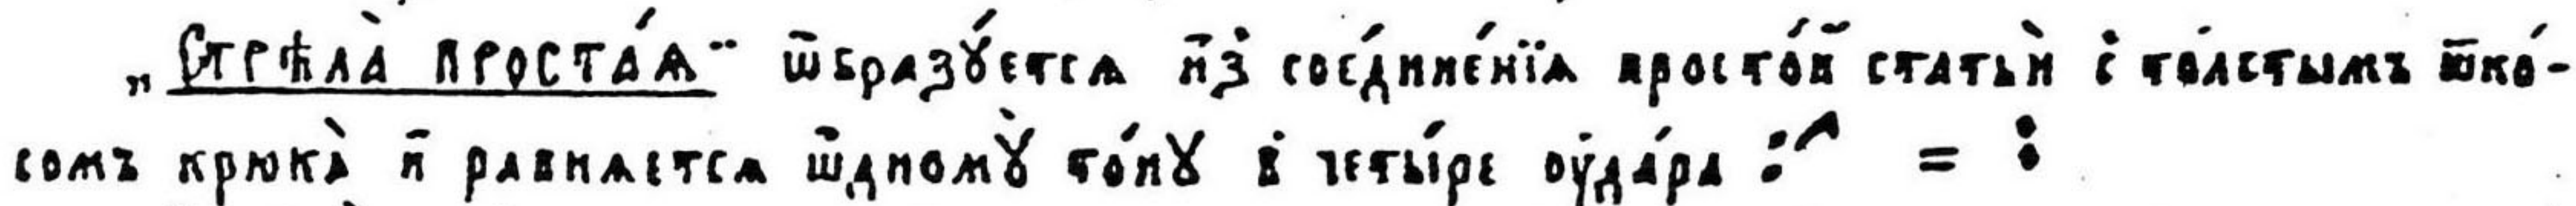 „Стрѣла̀ проста́ѧ“ ѿбразꙋ́етсѧ и҆з̾ сое҆дине́нїѧ просто́й статьѝ с̾ то́лстымъ ѿко́-
сомъ крюка̀ и҆ равнѧетсѧ ѿдномꙋ̀ то́нꙋ в̾ четы́ре оу҆да́ра = :